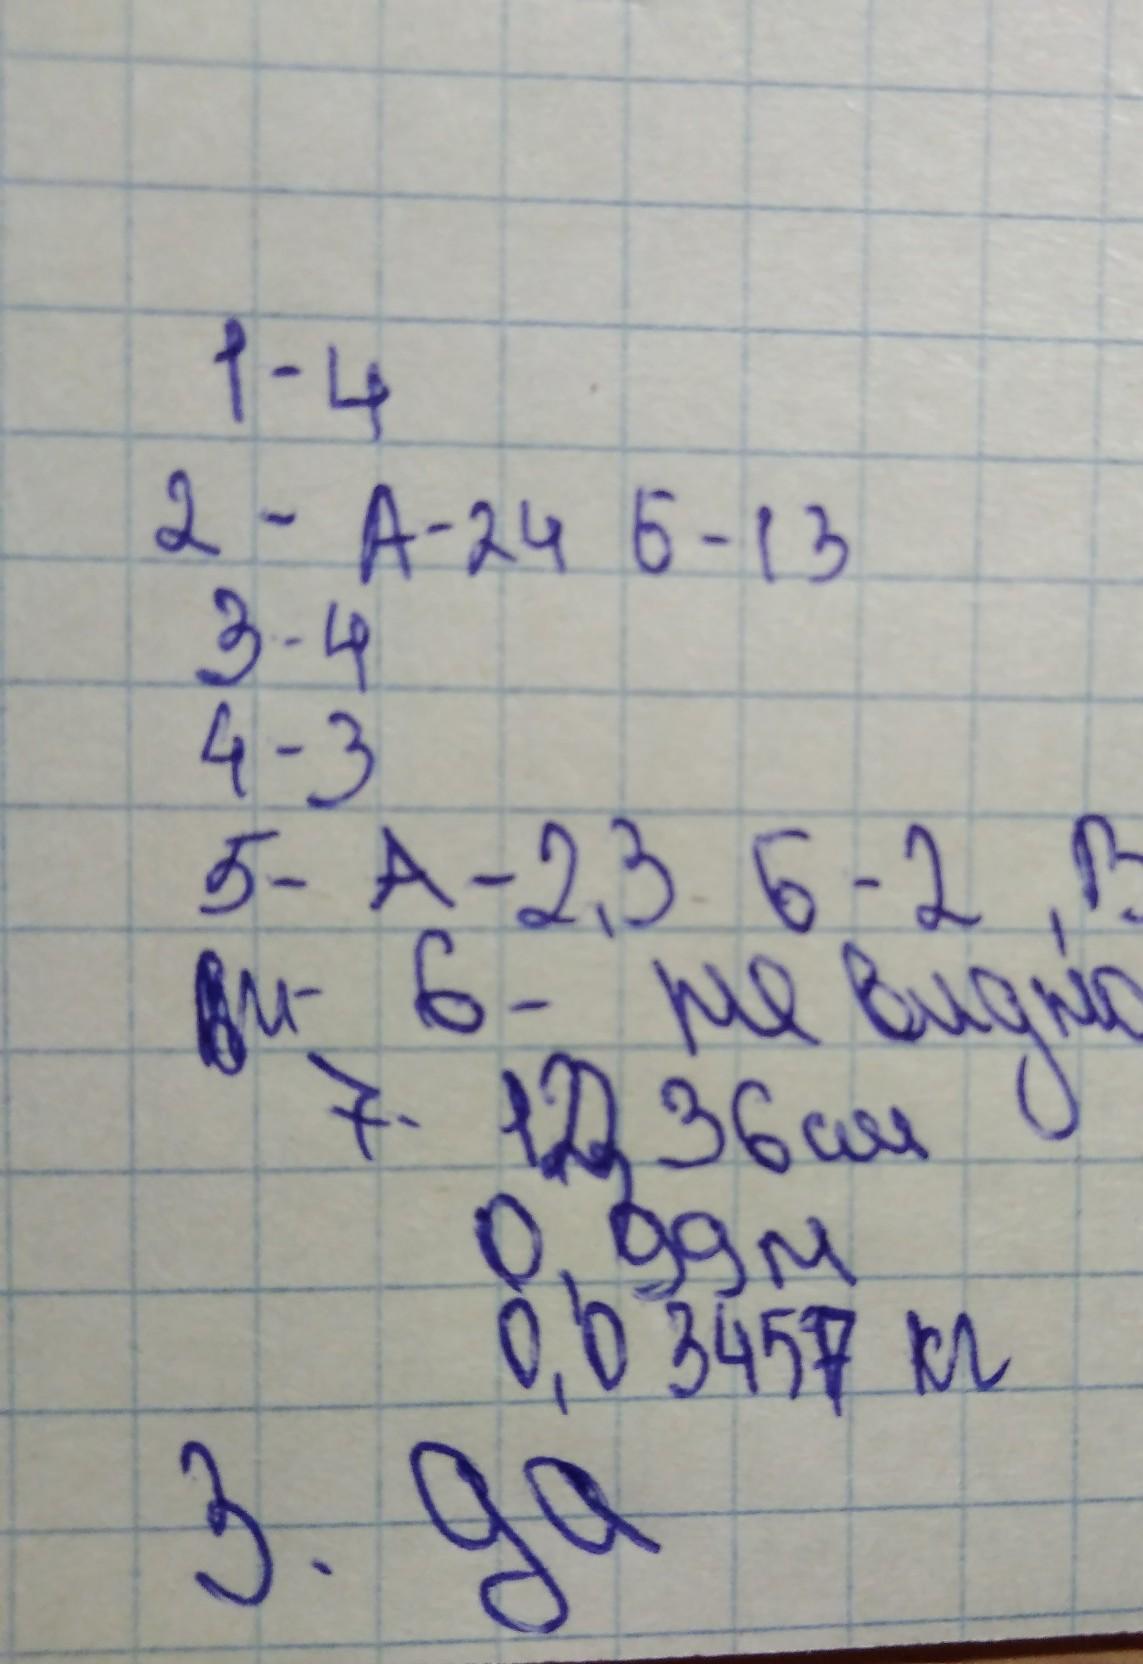 1 - 4
2 - А - 24 Б - 13
3 - 4
4 - 3
5 - А - 2,3 Б - 2, В
6 - не видно
7. 36 см
0,99 м
0,03457 кг
3. да